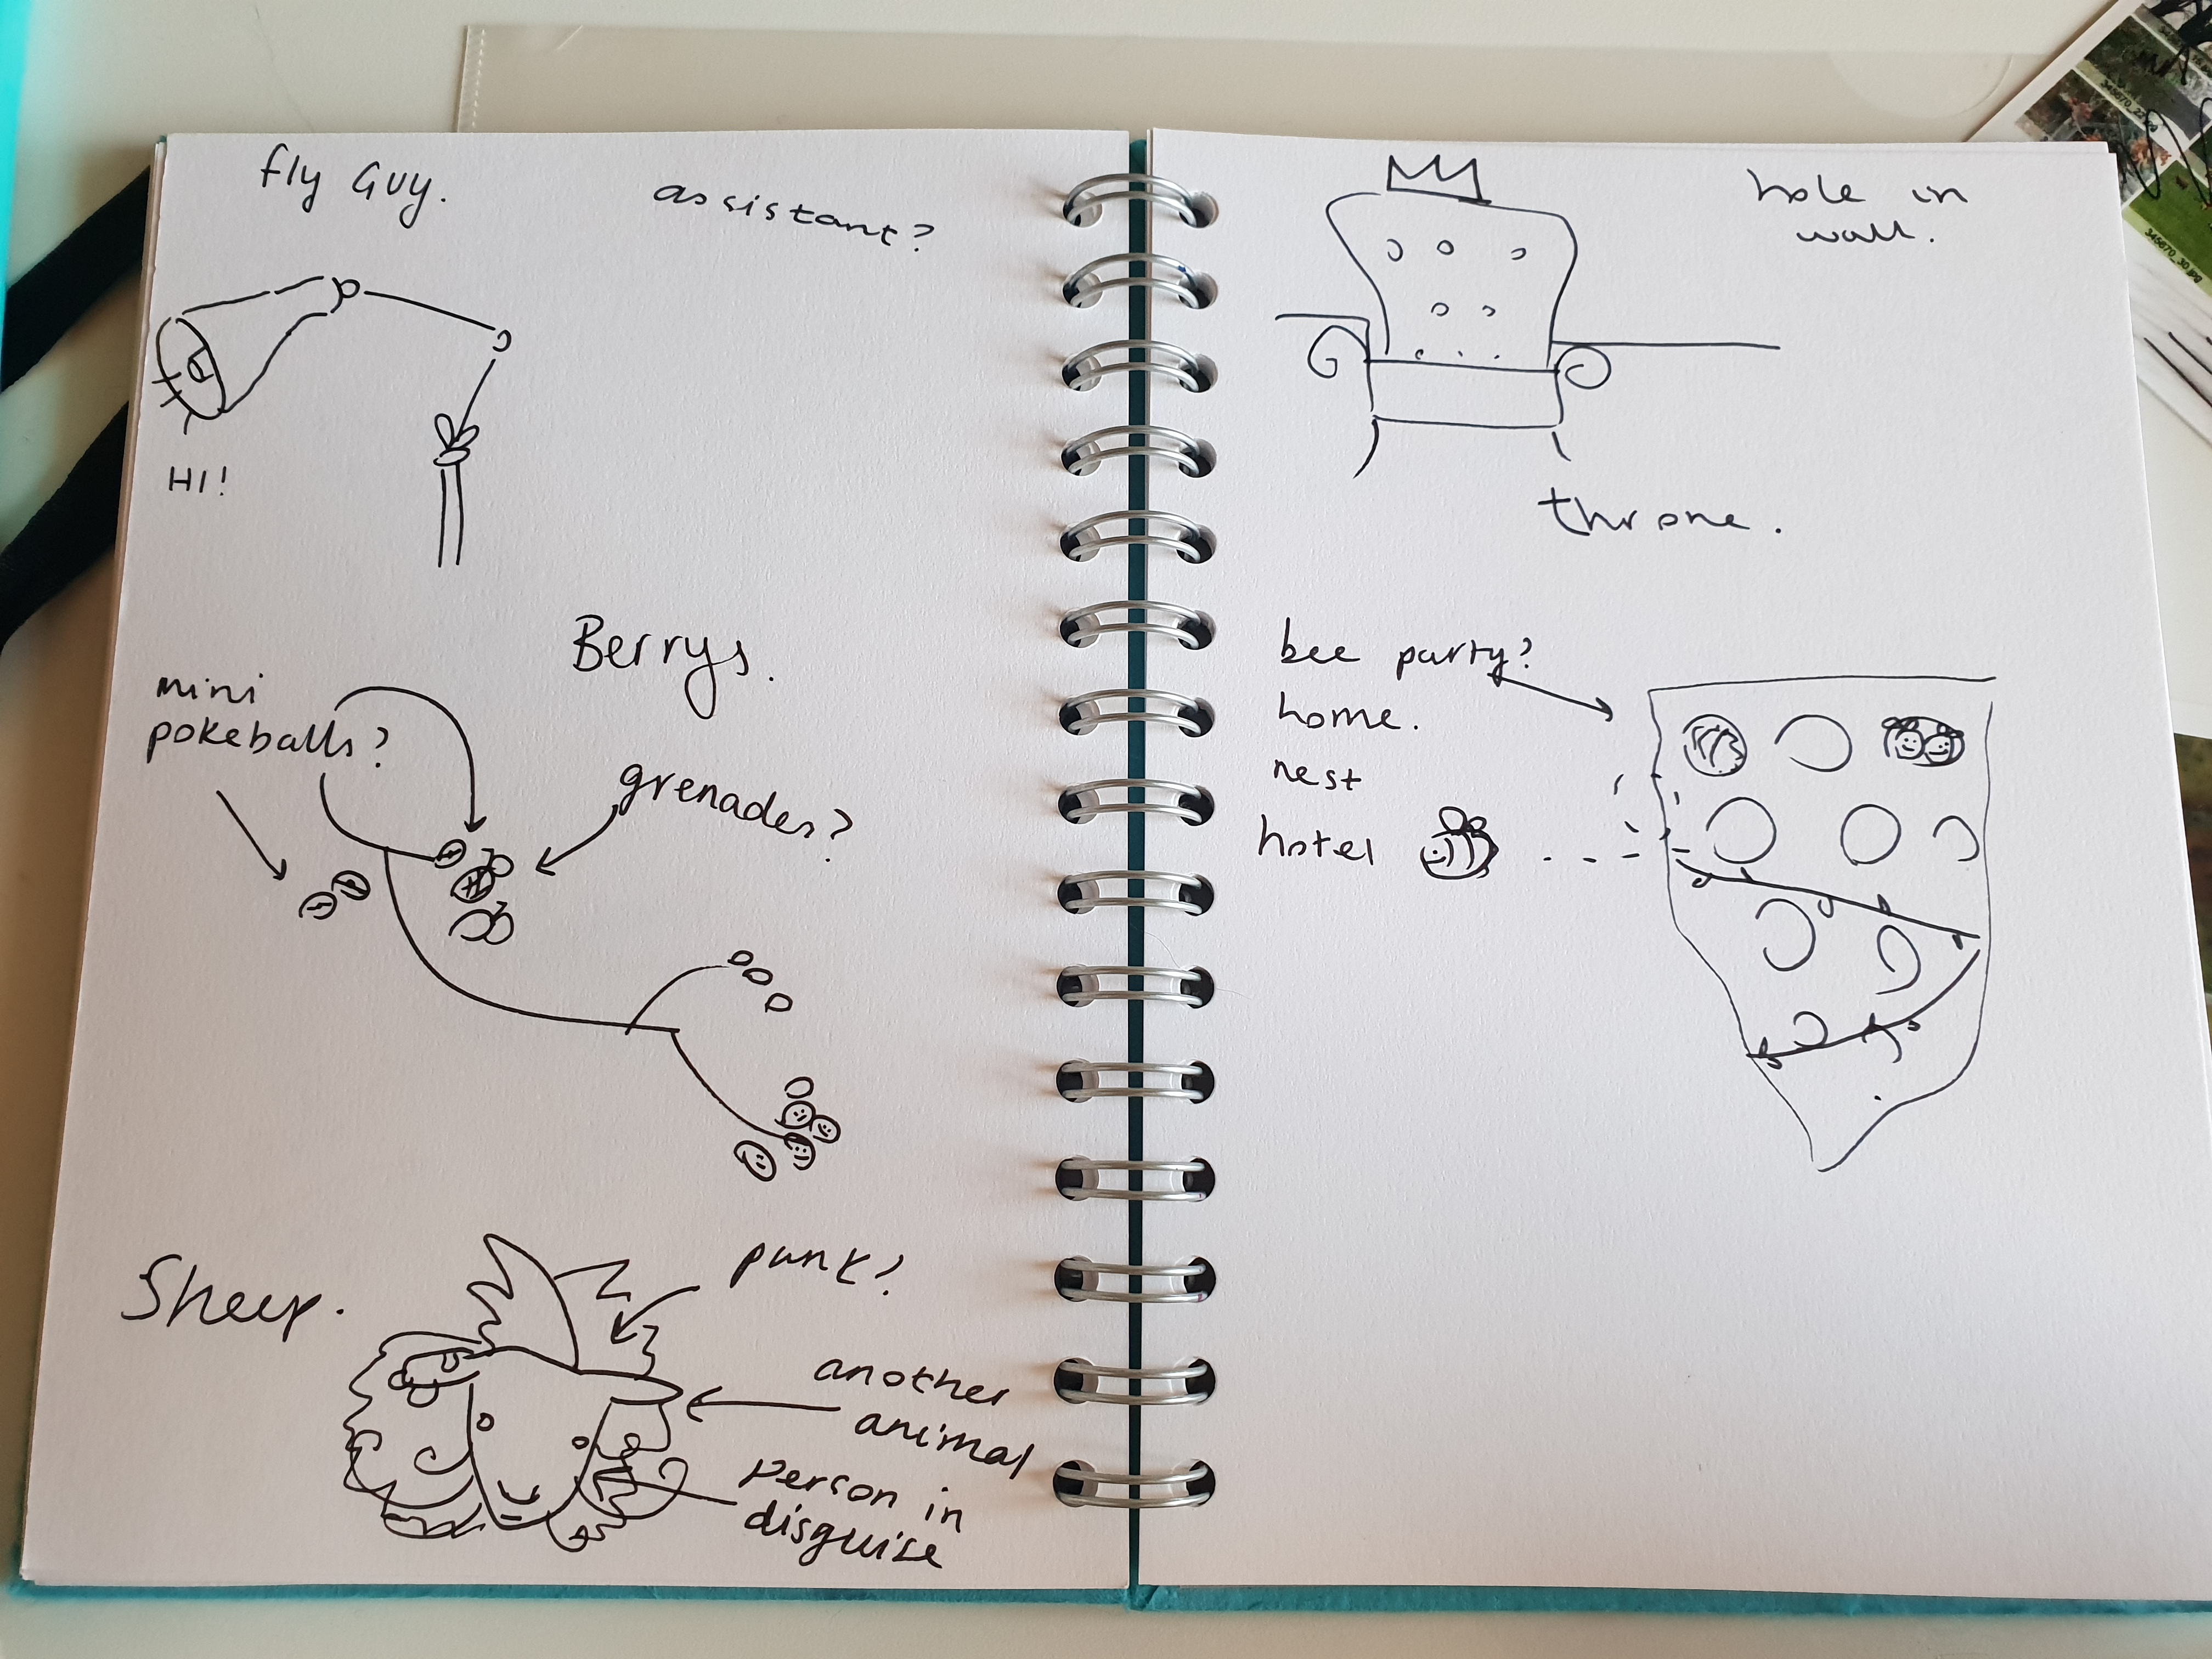 fly Guy.
assistant?
HI!
Berrys.
mini
pokeballs?
grenades?
Sheep.
punk?
another
animal
Person in
disguise
hole in
wall.
throne.
bee party?
home.
nest
hotel
345670_30.jpg